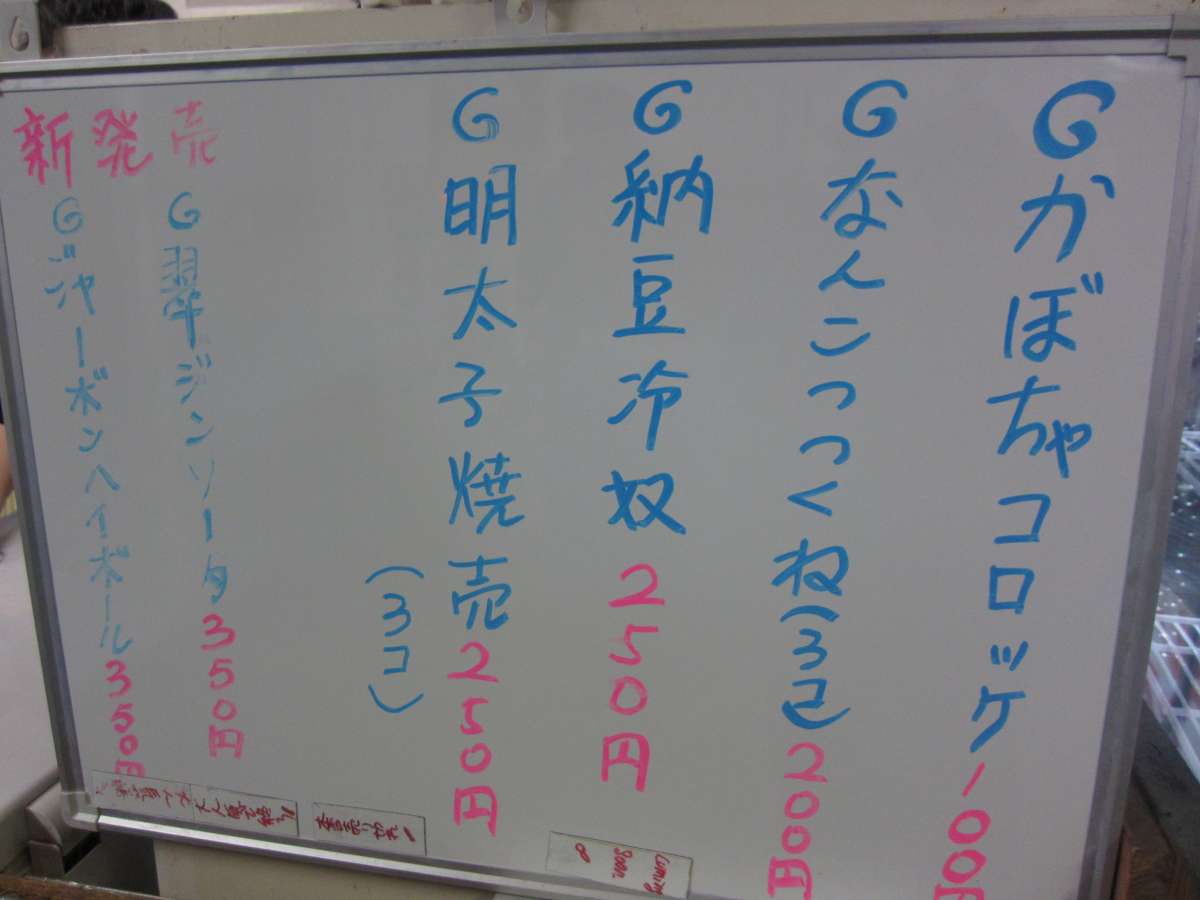 Gかぼちゃコロッケ100円
Gなんこつつくね(3コ)200円
G納豆冷奴250円
G明太子焼売250円
(3コ)
新発売
G翠ジンソーダ350円
Gジャーボンヘイボール350円
Coming
Soon
本日売り切れ!